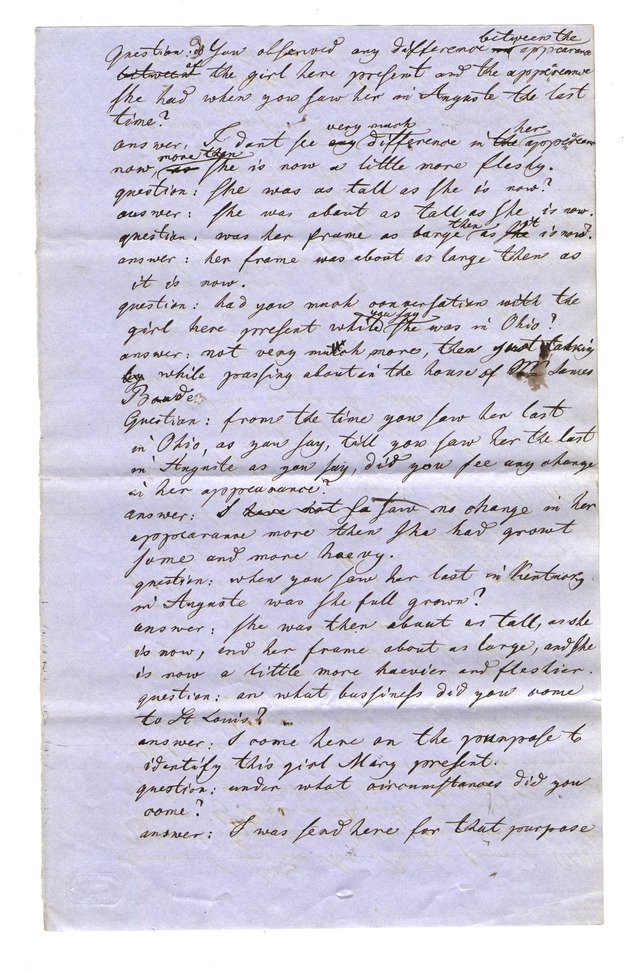 question: you observed any difference between the appearance
of the girl here present and the appearance
she had when you saw her in Auguste the last
time?
answer, I dant see very much difference in her appearance
now more then she is now a little more fleshy.
question: she was as tall as she is now?
answer: she was about as tall as she is now.
question. was her frame as large then as it is now.
answer: her frame was about as large then as
it is now.
question: had you much conversation with the
girl here present while you say she was in Ohio?
answer: not very much more, then talking
while passing about in the house of Mr James
Boude
Question: frome the time you saw her last
in Ohio, as you say, till you saw her the last
in Auguste as you say, did you see any change
in her appearance?
answer: I saw no change in her
appearanne more then she had growt
some and more haevy.
question: when you saw her last in Kentucky
in Auguste was she full grown?
answer: she was then about as tall, as she
is now, and her frame about as large, and she
is now a little more haevier and fleshier.
question: an what bussiness did you come
to St Louis?
answer: I come here on the purpose to
identify this girl Mary present.
question: under what circumstances did you
come?
answer: I was send here for that purpose